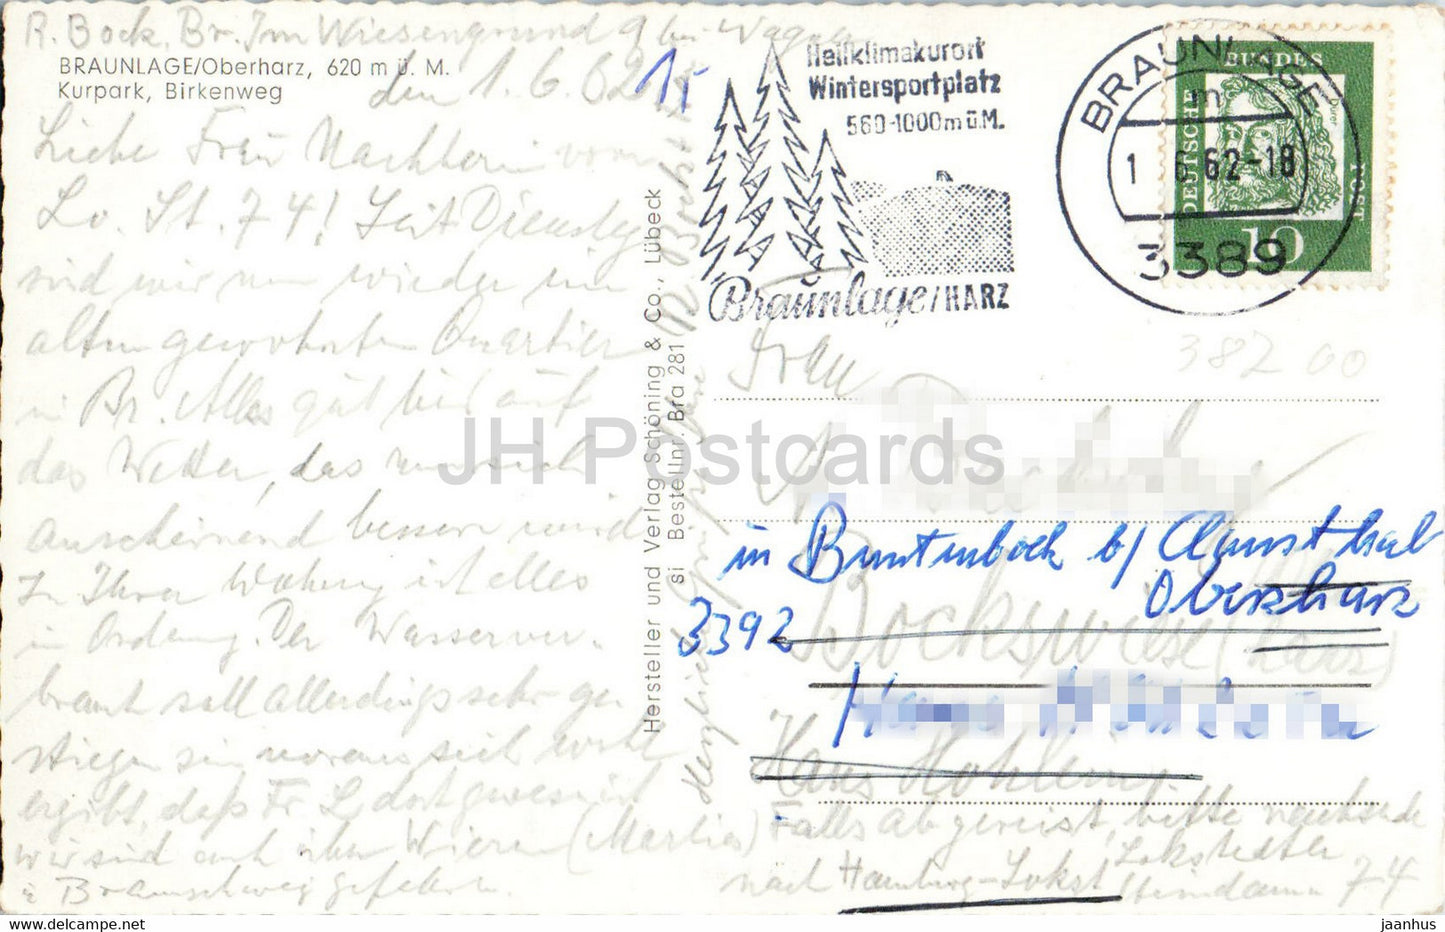 R. Bock, Br. Im Wiesengrund 9 bei Wagner
BRAUNLAGE/Oberharz, 620 m ü. M.
Kurpark, Birkenweg
den 1.6.62
1,-
Liebe Frau Nachbarin vom
Lo. St. 74! Seit Dienstag
sind wir nun wieder im
alten gewohnten Quartier
in Br. Alles gut bis auf
das Wetter, das nun sich
anscheinend bessern wird
In Ihrer Wohnung ist alles
in Ordnung. Der Wasserver-
brauch soll allerdings sehr ge-
stiegen sein woraus sich wohl
ergibt, daß Fr. L dort gewesen ist
wir sind auch über Wieren (Marlies)
n Braunschweig gefahren.
Herzlich grüßt Ihre
R. Bock
Hersteller und Verlag Schöning & Co., Lübeck
si Bestellnr. Bra 281
Heilklimakurort
Wintersportplatz
560-1000m ü.M.
Braunlage/HARZ
BRAUNLAGE
m
1. 6. 62-18
3389
DEUTSCHE
BUNDES
POST
Dürer
10
382 00
Frau
in Buntenbock b/ Clausthal
Oberharz
3392
Bockswiese (Harz)
Haus
Haus Hohl
Falls abgereist, bitte nachsende
nach Hamburg-Lokst Lokstedter
Steindamm 74
JH Postcards
www.hippostcard.com
jaanhus